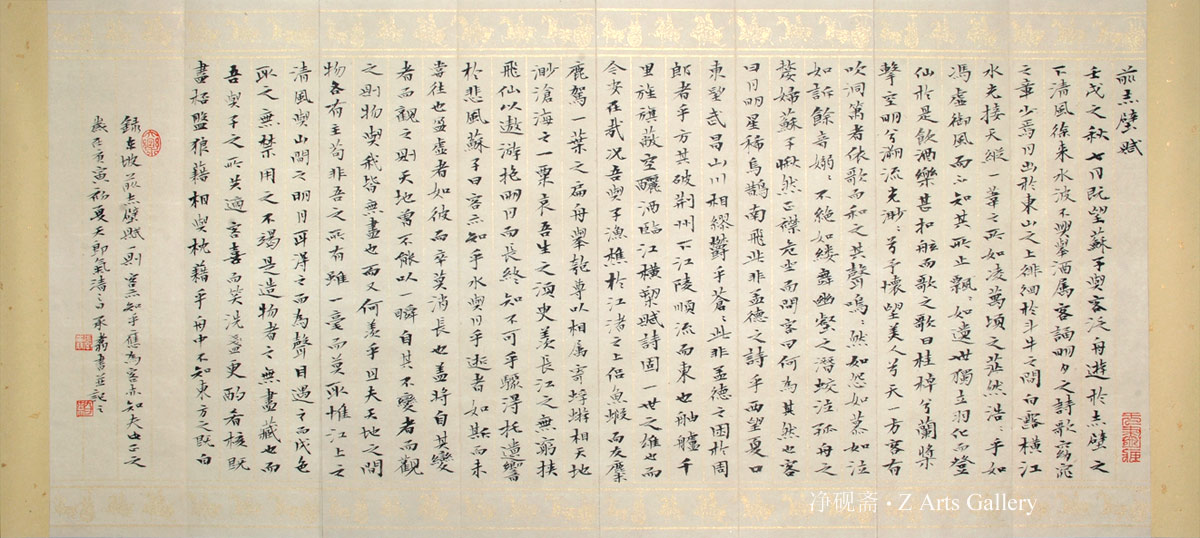 前赤壁賦
壬戌之秋七月既望蘇子與客泛舟遊於赤壁之
下清風徐來水波不興舉酒屬客誦明月之詩歌窈窕
之章少焉月出於東山之上徘徊於斗牛之間白露橫江
水光接天縱一葦之所如凌萬頃之茫然浩〻乎如
馮虛御風而不知其所止飄〻如遺世獨立羽化而登
仙於是飲酒樂甚扣舷而歌之歌曰桂棹兮蘭槳
擊空明兮溯流光渺〻兮予懷望美人兮天一方客有
吹洞簫者依歌而和之其聲嗚〻然如怨如慕如泣
如訴餘音嫋〻不絕如縷舞幽壑之潛蛟泣孤舟之
嫠婦蘇子愀然正襟危坐而問客曰何為其然也客
曰月明星稀烏鵲南飛此非孟德之詩乎西望夏口
東望武昌山川相繆鬱乎蒼〻此非孟德之困於周
郎者乎方其破荊州下江陵順流而東也舳艫千
里旌旗蔽空釃酒臨江橫槊賦詩固一世之雄也而
今安在哉況吾與子漁樵於江渚之上侶魚蝦而友麋
鹿駕一葉之扁舟舉匏尊以相屬寄蜉蝣於天地
渺滄海之一粟哀吾生之須臾羨長江之無窮挾
飛仙以遨游抱明月而長終知不可乎驟得托遺響
於悲風蘇子曰客亦知乎水與月乎逝者如斯而未
嘗往也盈虛者如彼而卒莫消長也蓋將自其變
者而觀之則天地曾不能以一瞬自其不變者而觀
之則物與我皆無盡也而又何羨乎且夫天地之間
物各有主苟非吾之所有雖一毫而莫取惟江上之
清風與山間之明月耳得之而為聲目遇之而成色
取之無禁用之不竭是造物者之無盡藏也而
吾與子之所共適客喜而笑洗盞更酌肴核既
盡杯盤狼藉相與枕藉乎舟中不知東方之既白
錄東坡前赤壁賦一則客亦知乎應為客亦知夫也正之
歲在庚寅初夏天朗氣清書並記之
净砚斋·Z Arts Gallery